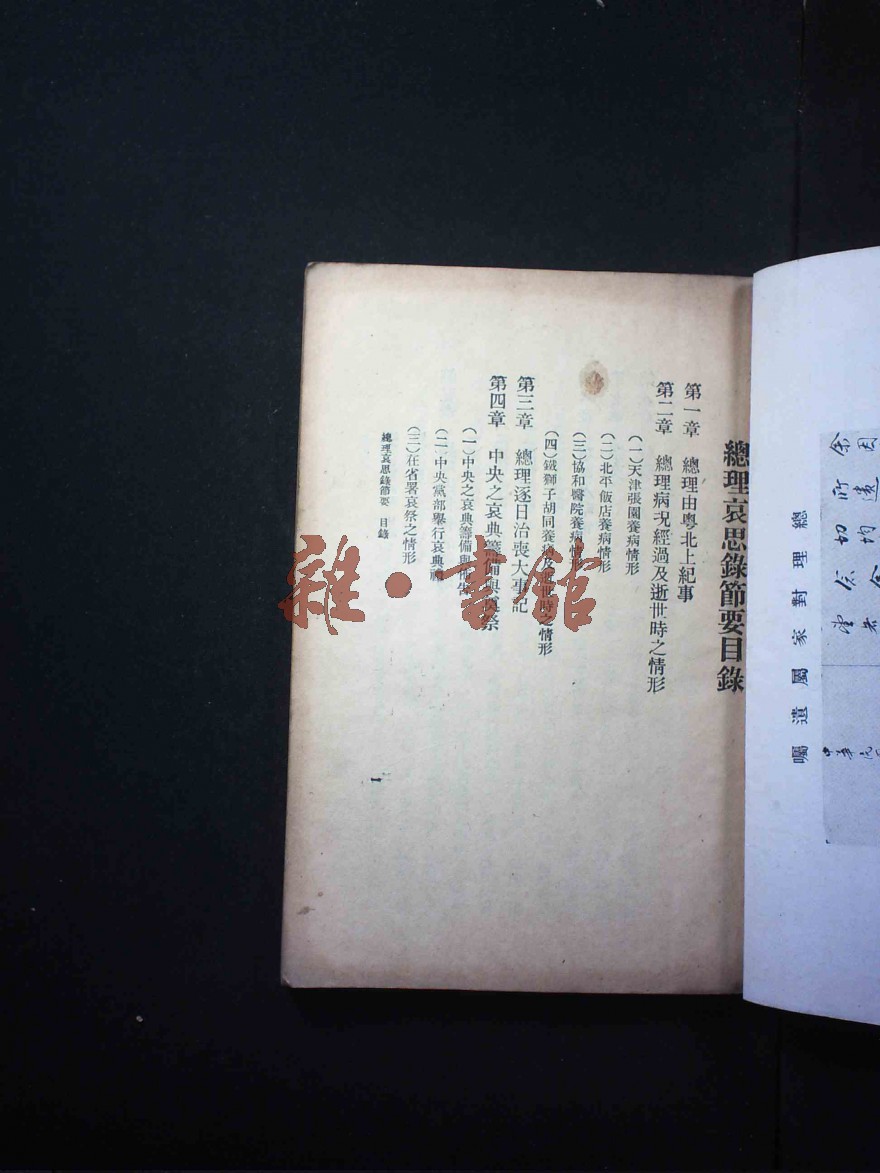 總理哀思錄節要目錄
第一章 總理由粵北上紀事
第二章 總理病況經過及逝世時之情形
(一)天津張園養病情形
(二)北平飯店養病情形
(三)協和醫院養病情形
(四)鐵獅子胡同養病及逝世時之情形
第三章 總理逐日治喪大事記
第四章 中央之哀典籌備與奠祭
(一)中央之哀典籌備與
(二)中央黨部舉行哀典
(三)在省署哀祭之情形
總理哀思錄節要 目錄
一
總理對家屬遺囑
余因
所遺
切均
余
望
者
中華民
雜·書館